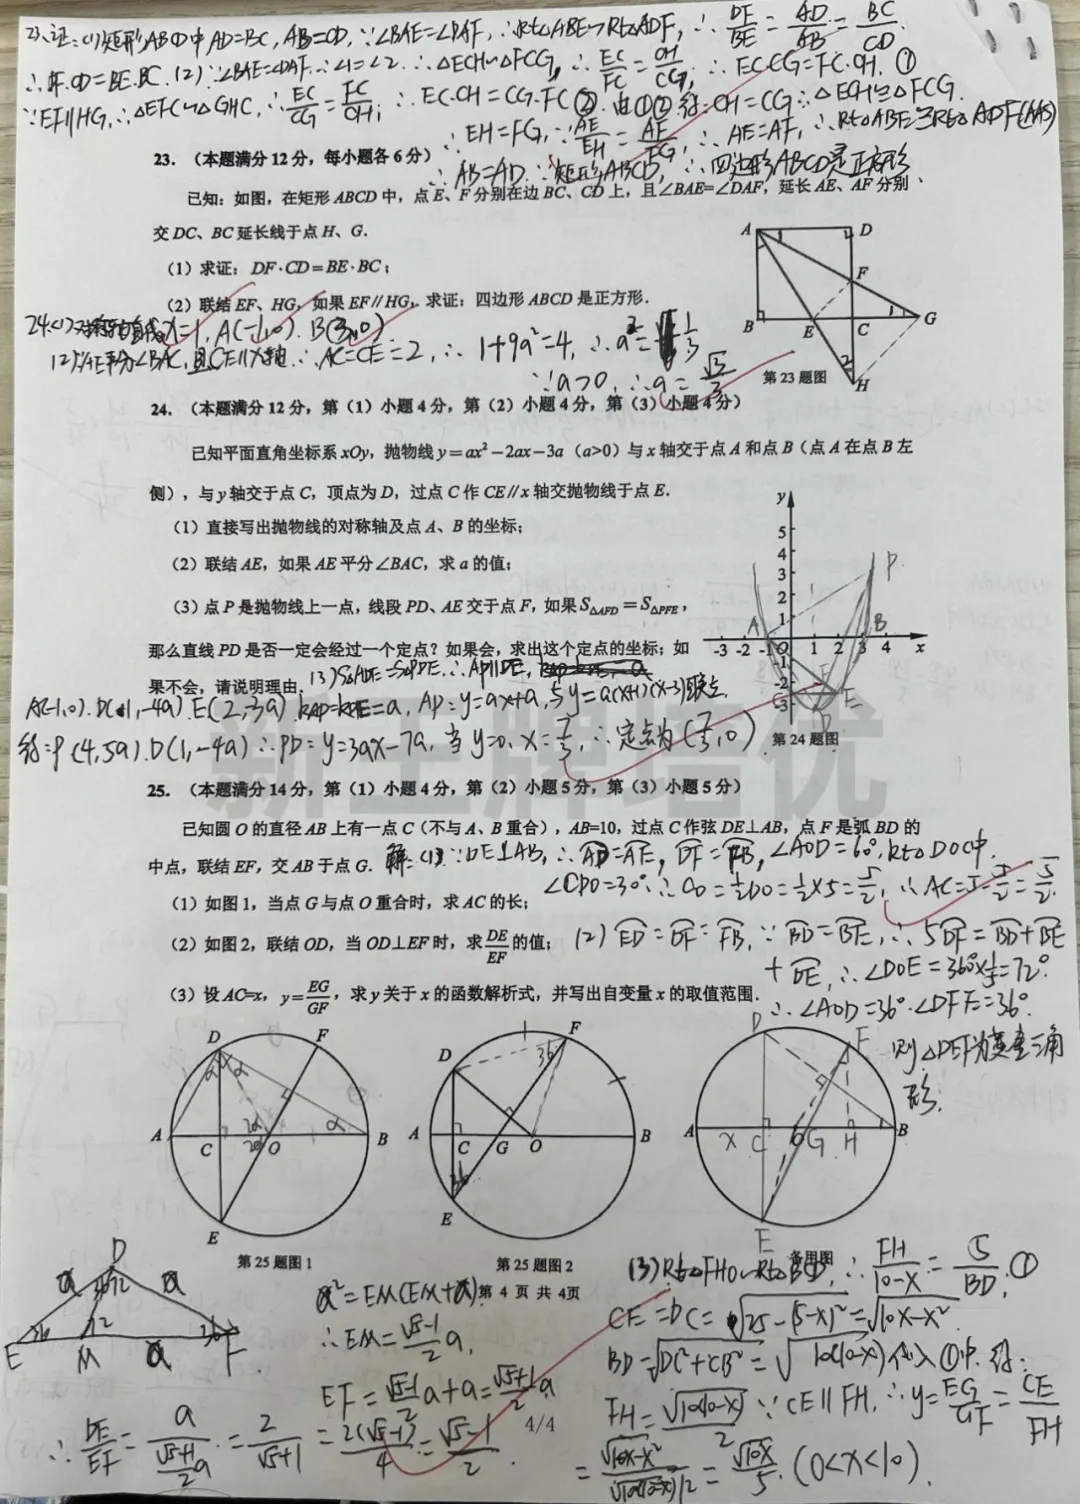 23、证:(1)矩形ABCD中AD=BC, AB=CD, ∵∠BAE=∠DAF, ∴Rt△ABE∽Rt△ADF, ∴ DF/BE = AD/AB = BC/CD.
∴DF·CD=BE·BC. (2)∵∠BAE=∠DAF ∴∠1=∠2. ∴△ECH∽△FCG, ∴ EC/FC = CH/CG, ∴ EC·CG=FC·CH. ①
∵EF∥HG, ∴△EFC∽△GHC, ∴ EC/CG = FC/CH, ∴ EC·CH=CG·FC ②. 由①② 得: CH=CG ∴△ECH≌△FCG.
∴EH=FG, ∵ AE/EH = AF/FG, ∴ AE=AF, ∴Rt△ABE≌Rt△ADF(AAS)
∴AB=AD. ∵矩形ABCD, ∴四边形ABCD是正方形
23. (本题满分 12 分,每小题各 6 分)
已知:如图,在矩形 ABCD 中,点 E、F 分别在边 BC、CD 上,且∠BAE=∠DAF,延长 AE、AF 分别
交 DC、BC 延长线于点 H、G.
(1)求证:DF·CD=BE·BC;
(2)联结 EF、HG,如果 EF∥HG,求证:四边形 ABCD 是正方形.
A D F B E C G H 1 2
第 23 题图
24.(1) x=1, A(-1,0). B(3,0)
(2)∵AE平分∠BAC, 且CE∥x轴 ∴AC=CE=2, ∴ 1+9a²=4, ∴a²=1/3
∵a>0, ∴a=√3/3
24. (本题满分 12 分,第(1)小题 4 分,第(2)小题 4 分,第(3)小题 4 分)
已知平面直角坐标系 xOy,抛物线 y=ax²−2ax−3a(a>0)与 x 轴交于点 A 和点 B(点 A 在点 B 左
侧),与 y 轴交于点 C,顶点为 D,过点 C 作 CE∥x 轴交抛物线于点 E.
(1)直接写出抛物线的对称轴及点 A、B 的坐标;
(2)联结 AE,如果 AE 平分∠BAC,求 a 的值;
(3)点 P 是抛物线上一点,线段 PD、AE 交于点 F,如果 S△AFD=S△PFE,
那么直线 PD 是否一定会经过一个定点?如果会,求出这个定点的坐标;如
果不会,请说明理由.
y 5 4 3 2 1 -3 -2 -1 O 1 2 3 4 x -1 -2 -3 A B P E D F
第 24 题图
(3)S△ADE=S△PDE ∴AP∥DE,
A(-1,0). D(1,-4a). E(2,-3a) kAP=kDE=a, AP: y=ax+a, 与y=a(x+1)(x-3)联立
得:P(4,5a). D(1,-4a) ∴PD: y=3ax-7a, 当y=0, x=7/3, ∴定点为(7/3,0)
25. (本题满分 14 分,第(1)小题 4 分,第(2)小题 5 分,第(3)小题 5 分)
已知圆 O 的直径 AB 上有一点 C(不与 A、B 重合),AB=10,过点 C 作弦 DE⊥AB,点 F 是弧 BD 的
中点,联结 EF,交 AB 于点 G.
解:(1)∵DE⊥AB, ∴AD=AE, DF=FB, ∠AOD=60°, Rt△DOC中.
∠CDO=30° ∴CO=1/2DO=1/2×5=5/2, ∴AC=5-5/2=5/2.
(1)如图 1,当点 G 与点 O 重合时,求 AC 的长;
(2)如图 2,联结 OD,当 OD⊥EF 时,求 DE/EF 的值;
(2) ED=DF=FB, ∵BD=BE, ∴5DF=BD+BE
+DE, ∴∠DOE=360°×1/5=72°.
(3)设 AC=x,y=EG/GF,求 y 关于 x 的函数解析式,并写出自变量 x 的取值范围.
∴∠AOD=36°. ∠DFE=36°.
则△DEF为黄金三角
形.
D F A C O B E α α α 2α 2α
D F A C G O B E 36 36
D F A x C O G H B E
第 25 题图 1
第 25 题图 2
备用图
D a a 36 72 36 72 36 E M a F
a²=EM(EM+a)
∴EM=(√5-1)/2 a,
EF=(√5-1)/2 a+a=(√5+1)/2 a
∴DE/EF = a/((√5+1)/2 a) = 2/(√5+1) = 2(√5-1)/4 = (√5-1)/2.
第 4 页 共 4页
4/4
(3)Rt△FHO∽Rt△BCD, ∴ FH/(10-x) = 5/BD. ①
CE=DC=√(25-(5-x)²)=√(10x-x²)
BD=√(DC²+CB²)=√(10(10-x)) 代入①中. 得:
FH=√(10(10-x))/2 ∵CE∥FH, ∴y=EG/GF=CE/FH
=√(10x-x²)/(√(10(10-x))/2)=√(10x)/5. (0<x<10).
新王牌培优